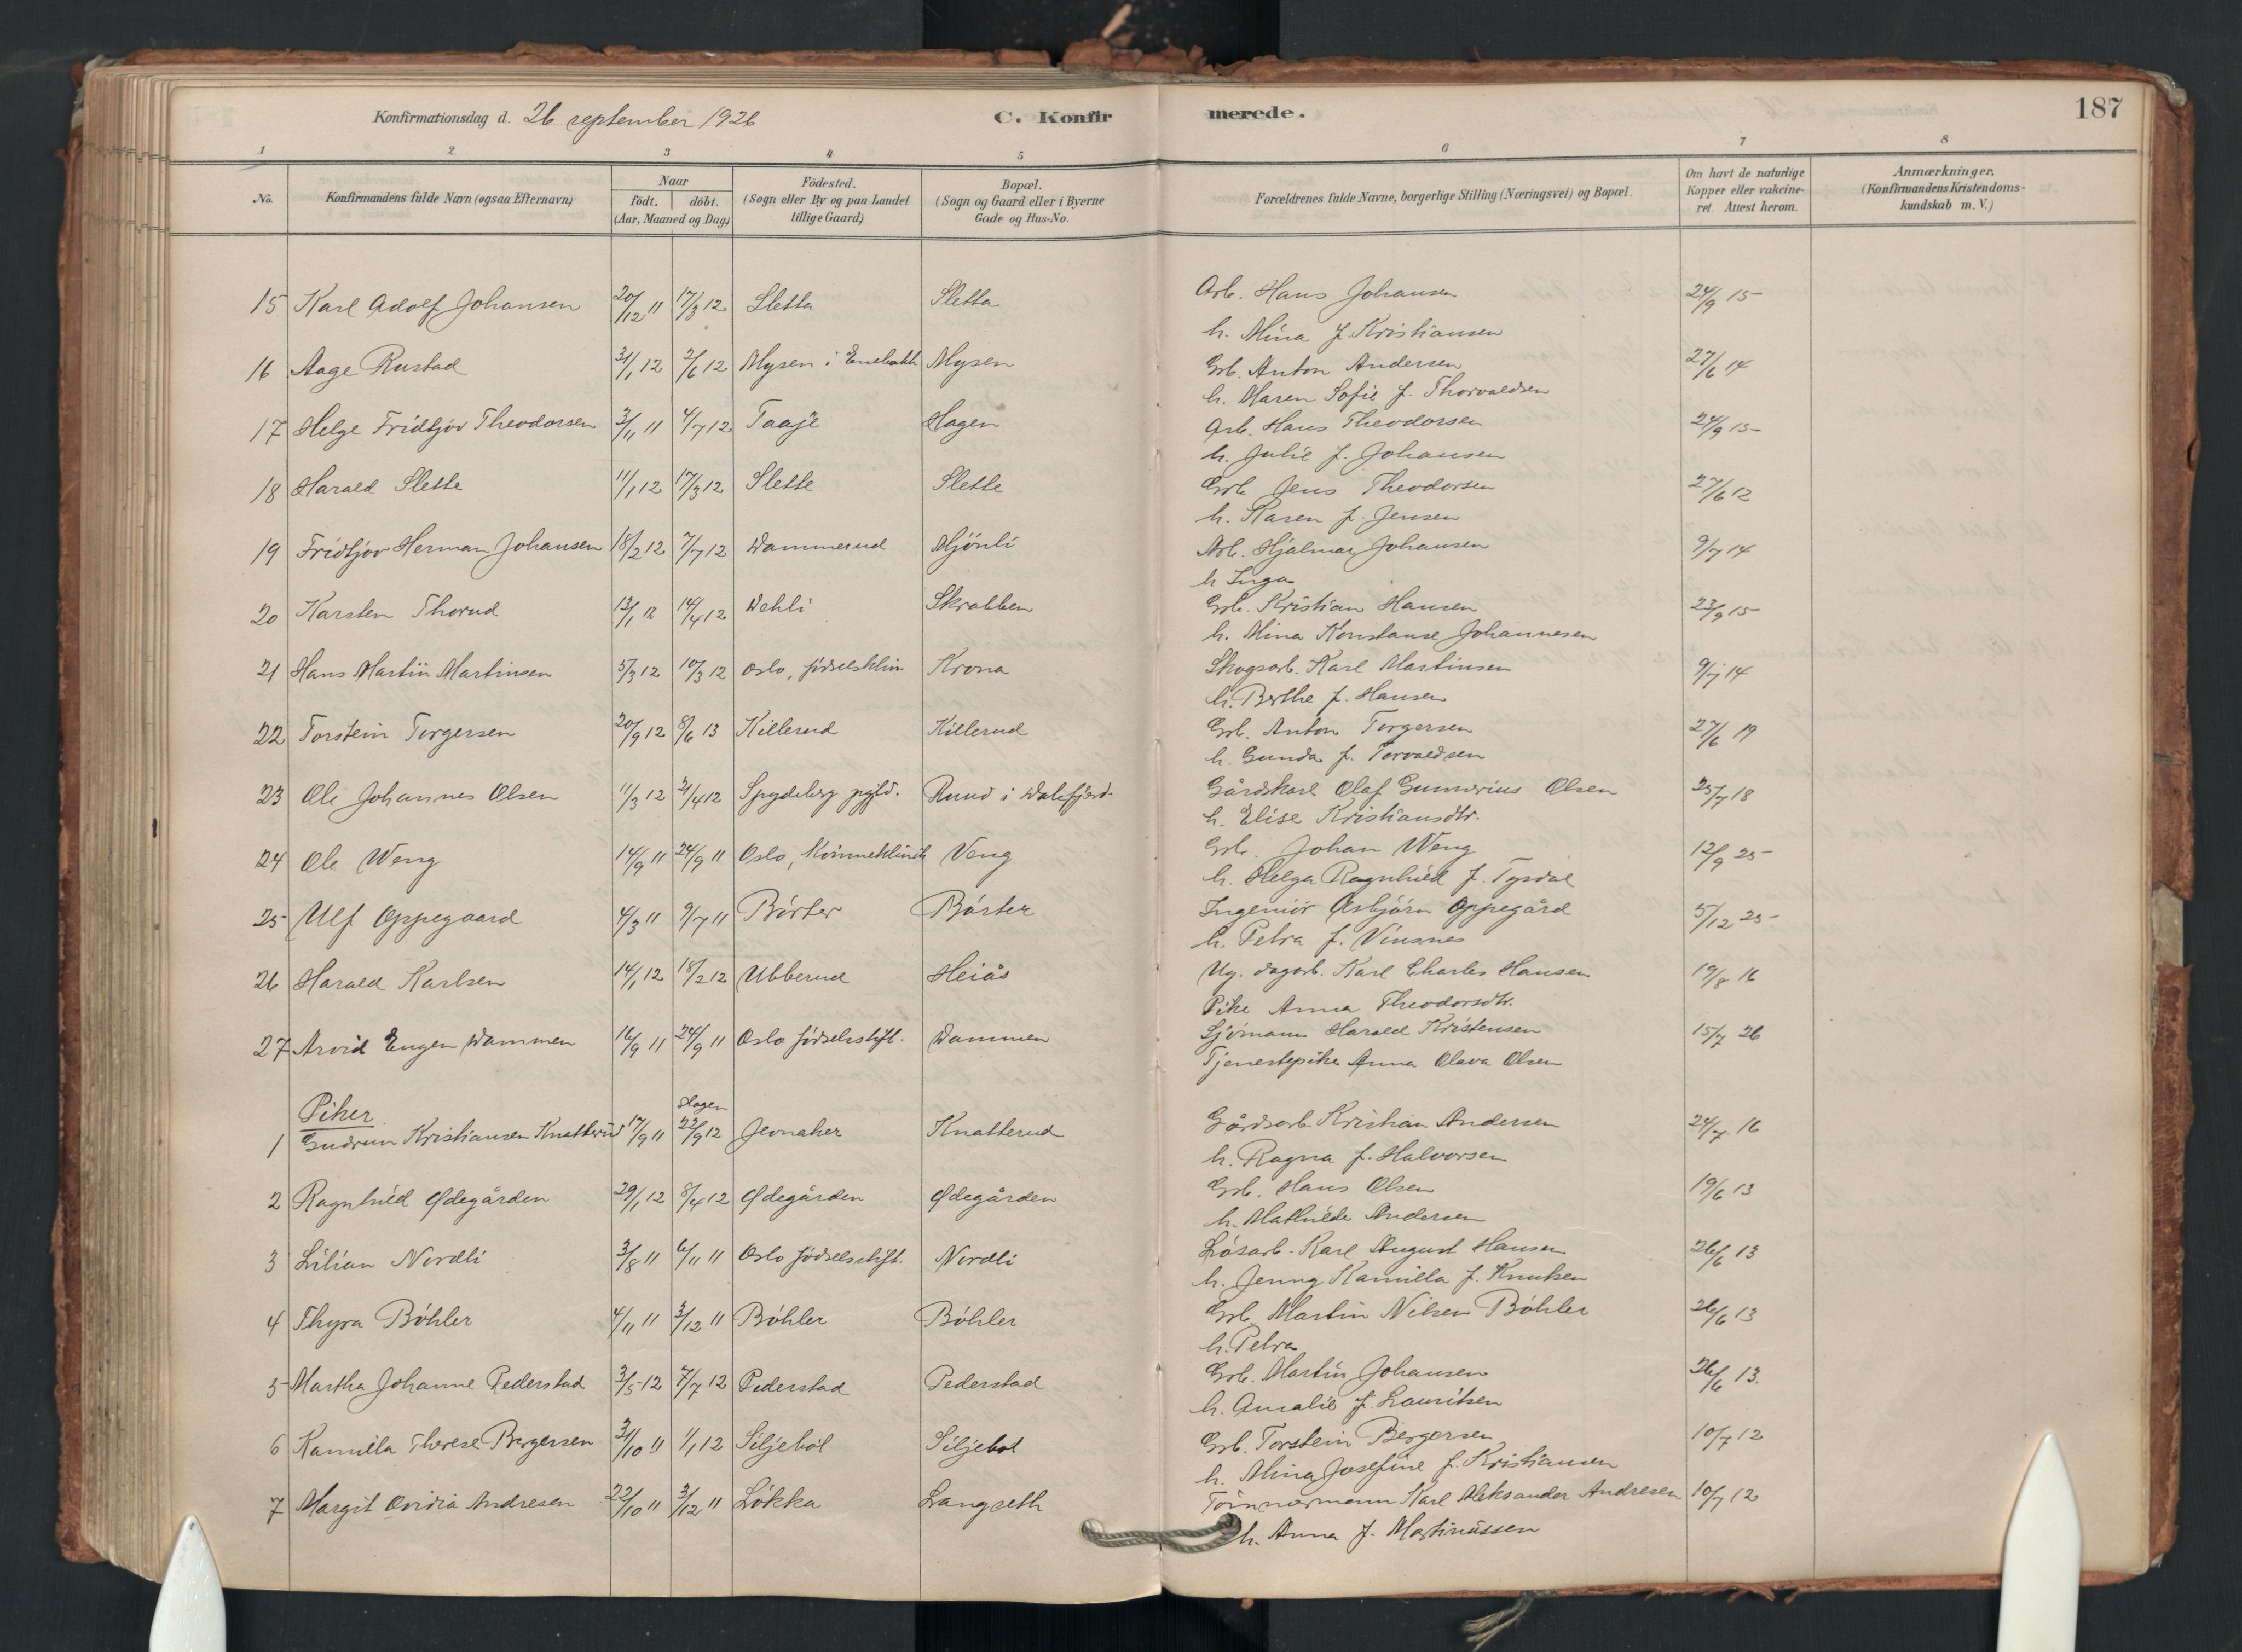 Konfirmationsdag d. 26 september 1926 C. Konfirmerede. 187
1 2 3 4 5 6 7 8
No. Konfirmandens fulde Navn (ogsaa Efternavn) Naar Födt. döbt. (Aar, Maaned og Dag) Födested. (Sogn eller By og paa Landet tillige Gaard) Bopæl. (Sogn og Gaard eller i Byerne Gade og Hus-No. Forældrenes fulde Navne, borgerlige Stilling (Næringsvei) og Bopæl. Om havt de naturlige Kopper eller vakcineret. Attest herom. Anmærkninger. (Konfirmandens Kristendomskundskab m. V.)
15 Karl Adolf Johansen 20/12 11 17/3 12 Sletta Sletta Arb. Hans Johansen 24/9 15
h. Mina f. Kristiansen
16 Aage Rustad 31/1 12 2/6 12 Mysen i Enebakk Mysen Grb. Anton Andersen 27/6 14
h. Maren Sofie f. Thorvaldsen
17 Helge Fridtjov Theodorsen 3/11 11 4/7 12 Taaje Hagen Arb. Hans Theodorsen 24/9 15
h. Julie f. Johansen
18 Harald Slette 11/1 12 17/3 12 Slette Slette Grb Jens Theodorsen 27/6 12
h. Karen f. Jensen
19 Fridtjov Herman Johansen 18/2 12 7/7 12 Dammerud Mjönli Arb. Hjalmar Johansen 9/7 14
h Inga
20 Karsten Thorud 13/1 12 14/4 12 Dehli Skrabben Grb. Kristian Hansen 23/9 15
h. Mina Konstanse Johannesen
21 Hans Martin Martinsen 5/3 12 10/3 12 Oslo, födselsklin Krona Skogsarb. Karl Martinsen 9/7 14
h. Berthe f. Hansen
22 Torstein Torgersen 20/9 12 8/6 13 Killerud Killerud Grb. Anton Torgersen 27/6 19
h. Gunda f. Torvaldsen
23 Ole Johannes Olsen 11/3 12 2/4 12 Spydeberg pgjld. Ruud i Dalefjerd. Gårdskarl Olaf Gunnerius Olsen 25/7 18
h. Elise Kristiansdtr.
24 Ole Weng 14/9 11 24/9 11 Oslo, Kvinneklinik Veng Grb. Johan Weng 12/9 25
h. Helga Ragnhild f. Tysdal
25 Ulf Oppegaard 4/3 11 9/7 11 Börter Börter Ingeniör Asbjörn Oppegård 5/12 25
h. Petra f. Vinsnes
26 Harald Karlsen 14/1 12 18/2 12 Ubberud Heiås Ug. dagarb. Karl Charles Hansen 19/8 16
Pike Anna Theodorsdtr.
27 Arvid Eugen Dammen 16/9 11 24/9 11 Oslo födselsstift. Dammen Sjömann Harald Kristensen 15/7 26
Tjenestepike Anna Olava Olsen
Piker
1 Gudrun Kristiansen Knatterud 17/9 11 Hagen 22/9 12 Jevnaker Knatterud Gårdsarb Kristian Andersen 24/7 16
h. Ragna f. Halvorsen
2 Ragnhild Ødegården 29/1 12 8/4 12 Ødegården Ødegården Grb. Hans Olsen 19/6 13
h. Mathilde Andersen
3 Lilian Nordli 3/8 11 6/11 11 Oslo födselsstift. Nordli Lösarb. Karl August Hansen 26/6 13
h. Jenny Kamilla f. Knutsen
4 Thyra Böhler 4/11 11 3/12 11 Böhler Böhler Grb Martin Nilsen Böhler 26/6 13
h. Petra
5 Martha Johanne Pederstad 3/5 12 7/7 12 Pederstad Pederstad Grb. Martin Johansen 26/6 13.
h. Amalie f. Lauritsen
6 Kamilla Therese Bergersen 31/10 11 1/1 12 Siljeböl Siljebøl Grb. Torstein Bergersen 10/7 12
h. Mina Josefine f. Kristiansen
7 Margit Ovidia Andresen 22/10 11 3/12 11 Lökka Langseth Tömmermann Karl Aleksander Andresen 10/7 12
h. Anna f. Martinussen